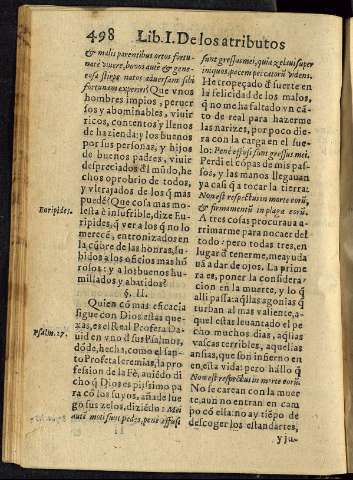 498 Lib. I. De los atributos
& malis parentibus ortos fortu-
natè vivere, bonos autē & gene-
rosa stirpe natos adversam sibi
fortunam experiri? Que vnos
hombres impios, peruer
sos y abominables, viuir
ricos, contentos y llenos
de hazienda: y los buenos
por sus personas, y hijos
de buenos padres, viuir
despreciados đl mūdo, he
chos oprobrio de todos,
y vltrajados de los q̄ mas
puedē? Que cosa mas mo-
lesta è insufrible, dize Eu-
Euripides.
ripides, q̄ ver a los q̄ no lo
merecē, entronizados en
la cūbre de las honras, su-
bidos a los oficios mas hō
rosos: y a los buenos hu-
millados y abatidos?
§. II.
Quien cō mas eficacia
sigue con Dios estas que-
xas, es el Real Profeta Da-
Psalm. 17.
uid en vno đ sus Psalmos,
dōde, hecha, como el san-
to Profeta Ieremias, la pro
fession de la Fè, auiēdo di
cho q̄ Dios es pijssimo pa
ra cō los suyos, añade lue
go sus zelos, diziēdo: Mei
autē moti sunt pedes, penè effusi
sunt gressus mei, quia zelaui super
iniquos, pacem peccatorū videns.
He tropeçado đ fuerte en
la felicidad de los malos,
q̄ no me ha faltado vn cā-
to de real para hazerme
las narizes, por poco die-
ra con la carga en el sue-
lo: Penè effusi sunt gressus mei.
Perdi el cōpas de mis pas-
sos, y las manos lleguauan
ya casi q̄ a tocar la tierra:
Non est respectus in morte eorū,
& firmamentū in plaga eorū.
A tres cosas procuraua a-
rrimarme para no caer del
todo: pero todas tres, en
lugar đ tenerme, me ayuda
uā a dar de ojos. La prime
ra es, poner la considera-
cion en la muerte, y lo q̄
alli passa: aq̄llas agonias q̄
turban al mas valiente, a-
quel estar leuantado el pe
cho muchos dias, aq̄llas
vascas terribles, aquellas
ansias, que son infierno en
en esta vida: pero hallo q̄
Non est respectus in morte eorū.
No se carean con la muer
te, aun no entran en cam
po cō ella: no ay tiēpo de
descoger los estandartes,
y ju-